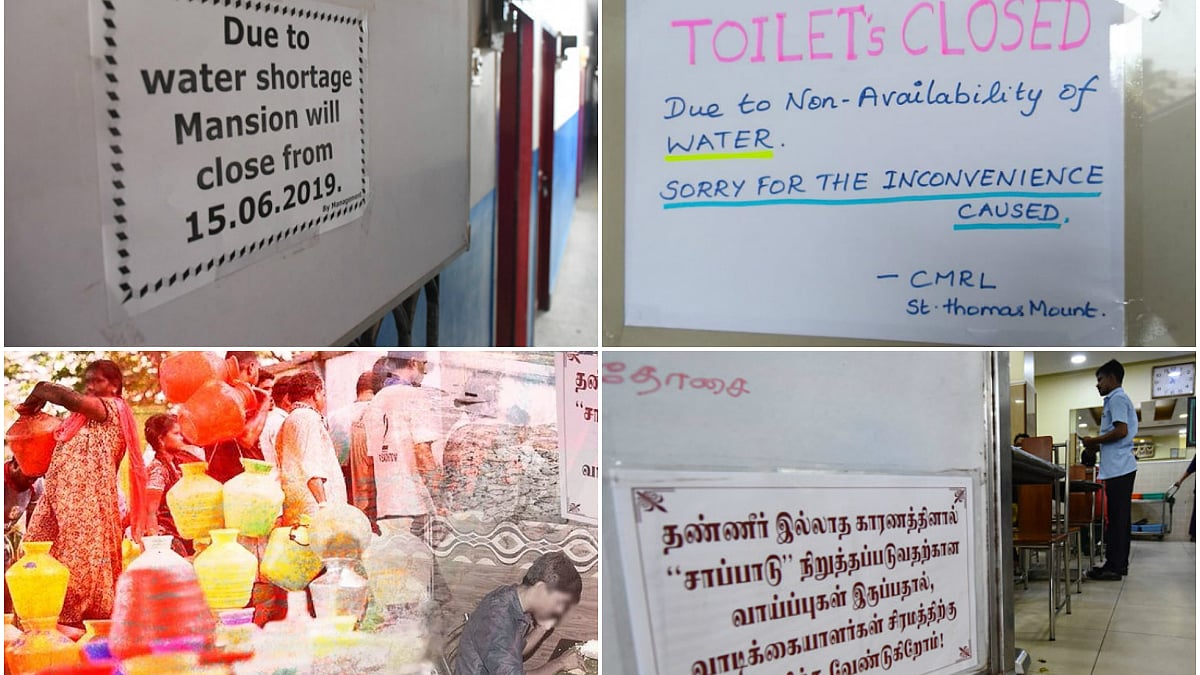 Due to
water shortage
Mansion will
close from
15.06.2019.
By Management
TOILET's CLOSED
Due to Non-Availability of
WATER.
SORRY FOR THE INCONVENIENCE
CAUSED.
- CMRL
St. thomas Mount.
தோசை
தண்ணீர் இல்லாத காரணத்தினால்
"சாப்பாடு" நிறுத்தப்படுவதற்கான
வாய்ப்புகள் இருப்பதால்,
வாடிக்கையாளர்கள் சிரமத்திற்கு
வேண்டுகிறோம்!